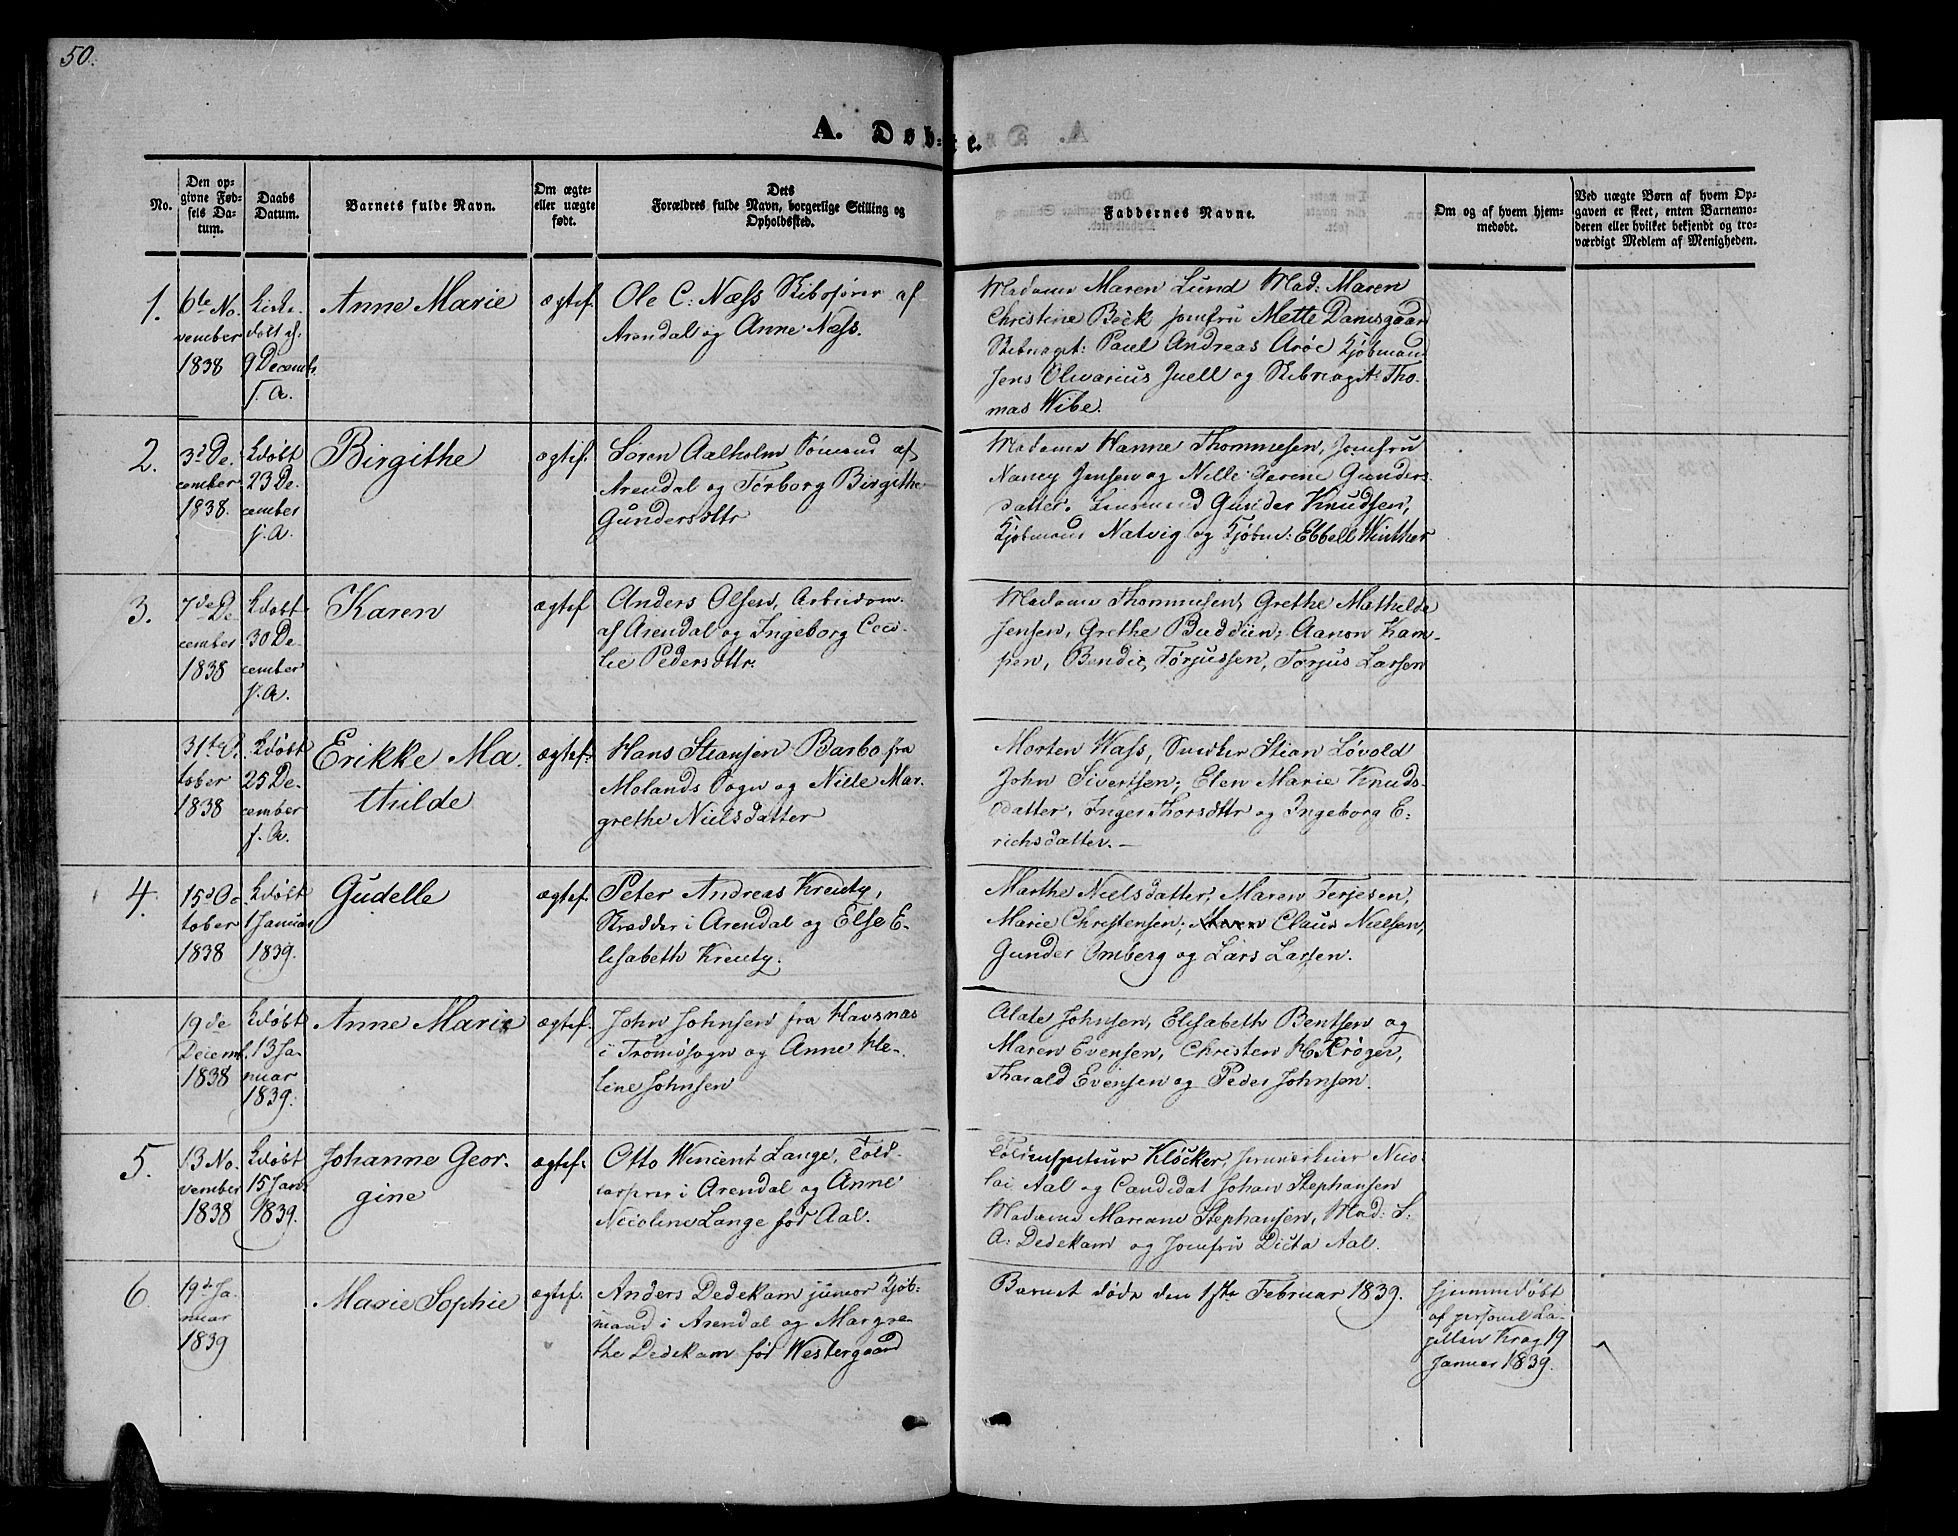 50.
A. Døb-
te.
No.
Den op-
givne Fød-
sels Da-
tum.
Daabs
Datum.
Barnets fulde Navn.
Om ægte-
eller uægte
født.
Dets
Forældres fulde Navn, borgerlige Stilling og
Opholdssted.
Faddernes Navne.
Om og af hvem hjem-
medøbt.
Ved uægte Børn af hvem Op-
gaven er skeet, enten Barnemo-
deren eller hvilket bekjendt og tro-
værdigt Medlem af Menigheden.
1.
6te No
vember
1838
døbt
9 Decemb.
f. A.
Anne Marie
ægtef.
Ole C: Næss Skibsfører af
Arendal og Anne Næss.
Madame Maren Lund Mad: Maren
Christine Beck Jomfru Mette Damsgaard
Paul Andreas Arøe Kjøbmand
Jens Olivarius Juell og Tho-
mas Wibe.
2.
3d De-
cember
1838.
Kdøbt
23 De-
cember
f. A.
Birgithe
ægtef.
Søren Aalholm Sømand af
Arendal og Tørborg Birgithe
Gundersdttr
Madame Hanne Thommesen, Jomfru
Nancy Jensen og Nille Serene Gunders-
datter. Gunder Knudsen,
Kjøbmand Natvig og Kjøbm: Ebbell Winther
3.
7de De-
cember
1838
Kdøbt
30 De-
cember
f. A.
Karen
ægtef
Anders Olsen, Arbeidsm.
af Arendal og Ingeborg Ceci-
lie Pedersdttr.
Madame Thommesen, Grethe Mathilde
Jensen, Grethe Buddün; Aanon Kam-
pen, Bendix Tørjussen, Torjus Larsen
31te Oc
tober
1838
Kdøbt
25 De-
cember
f. A.
Erikke Ma
thilde
ægtef.
Hans Stiansen Barbo fra
Molands Sogn og Nille Mar-
grethe Nielsdatter
Morten Hass, Snedker Stian Løvold
John Sivertsen; Elen Marie Knuds-
datter, Inger Thorsdttr og Ingeborg E-
richsdatter. –
4.
15d Oc
tober
1838
Kdøbt
1 Januar
1839.
Gudelle
ægtef.
Peter Andreas Kreutz,
Skrædder i Arendal og Else E-
lisabeth Kreutz.
Marthe Nielsdatter, Maren Terjesen,
Marie Christensen; Claus Nielsen,
Gunder Omberg og Lars Larsen.
19de
Decemb.
1838
Kdøbt
13 Ja-
nuar
1839.
Anne Marie
ægtef.
John Johnsen fra Havsnæs
i Tromøsogn og Anne He-
lene Johnsen
Alate Johnsen, Elisabeth Bentsen og
Maren Evensen, Christen H. Krøger,
Tharald Evensen og Peder Johnsen.
5.
13 No-
vember
1838
Kdøbt
15 Jan
1839.
Johanne Geor-
gine
ægtef.
Otto Wincent Lange, Told-
i Arendal og Anne
Nicoline Lange før Aal.
Toldinspecteur Kløcker, Nico-
lai Aal og Candidat Johan Stephansen
Madame Mariane Stephansen, Mad: S.
A: Dedekam og Jomfru Dicta Aal.
6.
19d Ja-
nuar
1839
Marie Sophie
ægtef.
Anders Dedekam junior Kjøb-
mand i Arendal og Margre-
the Dedekam før Westergaard
Barnet døde den 1ste Februar 1839.
hjemmedøbt
af personel Ca-
pellan Krog 19
Januar 1839.